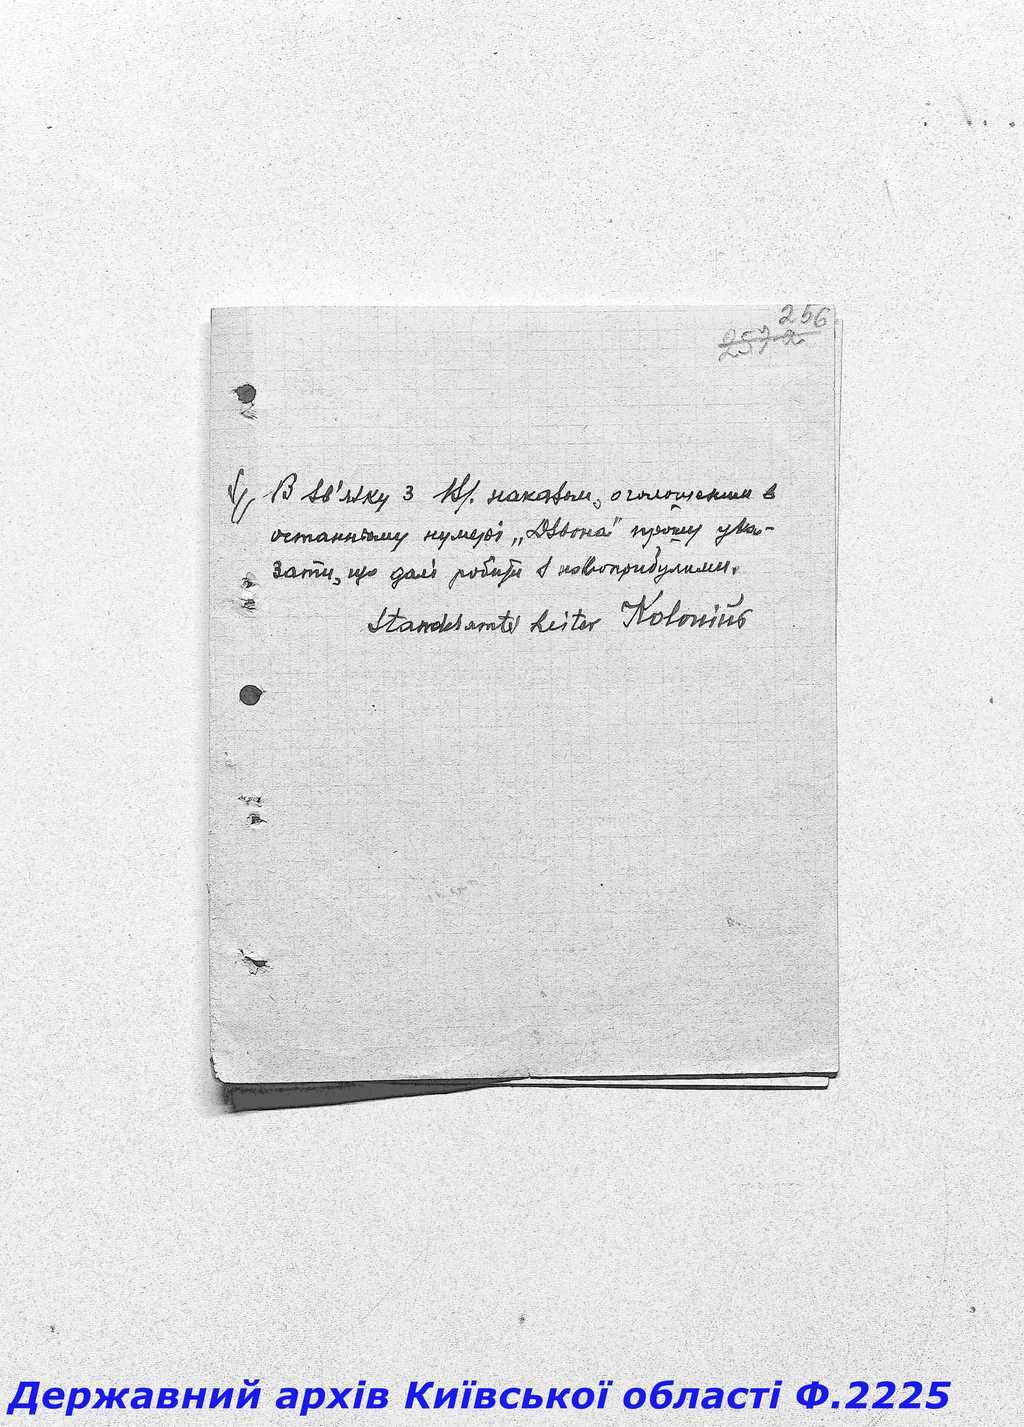 256
257a
В зв'язку з W/. наказом, оголошеним в
останньому нумері „Дзвона" прошу ука-
зати, що далі робити з новоприбулими.
Standesamts Leiter Kolonius
Державний архів Київської області Ф.2225